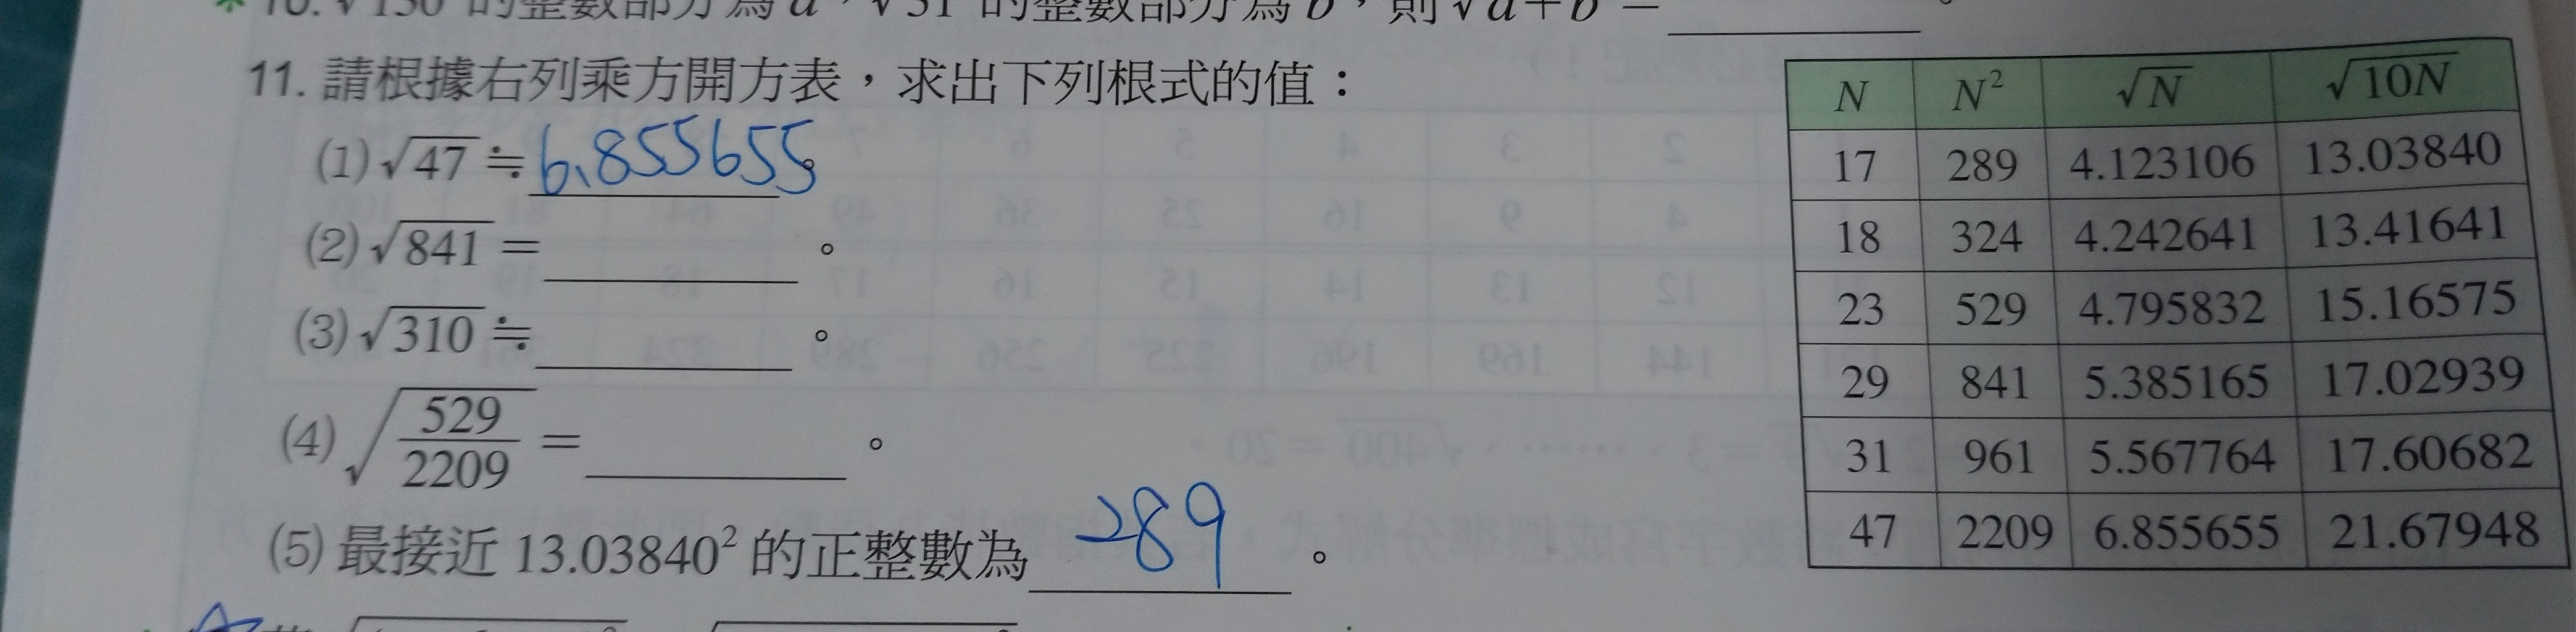 *10. √130 的整數部分為 a，√31 的整數部分為 b，則 √a+b = ________。
11. 請根據右列乘方開方表，求出下列根式的值：
(1) √47 ≒ 6.855655。
(2) √841 = ________。
(3) √310 ≒ ________。
(4) √529/2209 = ________。
(5) 最接近 13.03840² 的正整數為 289。
N N² √N √10N
17 289 4.123106 13.03840
18 324 4.242641 13.41641
23 529 4.795832 15.16575
29 841 5.385165 17.02939
31 961 5.567764 17.60682
47 2209 6.855655 21.67948